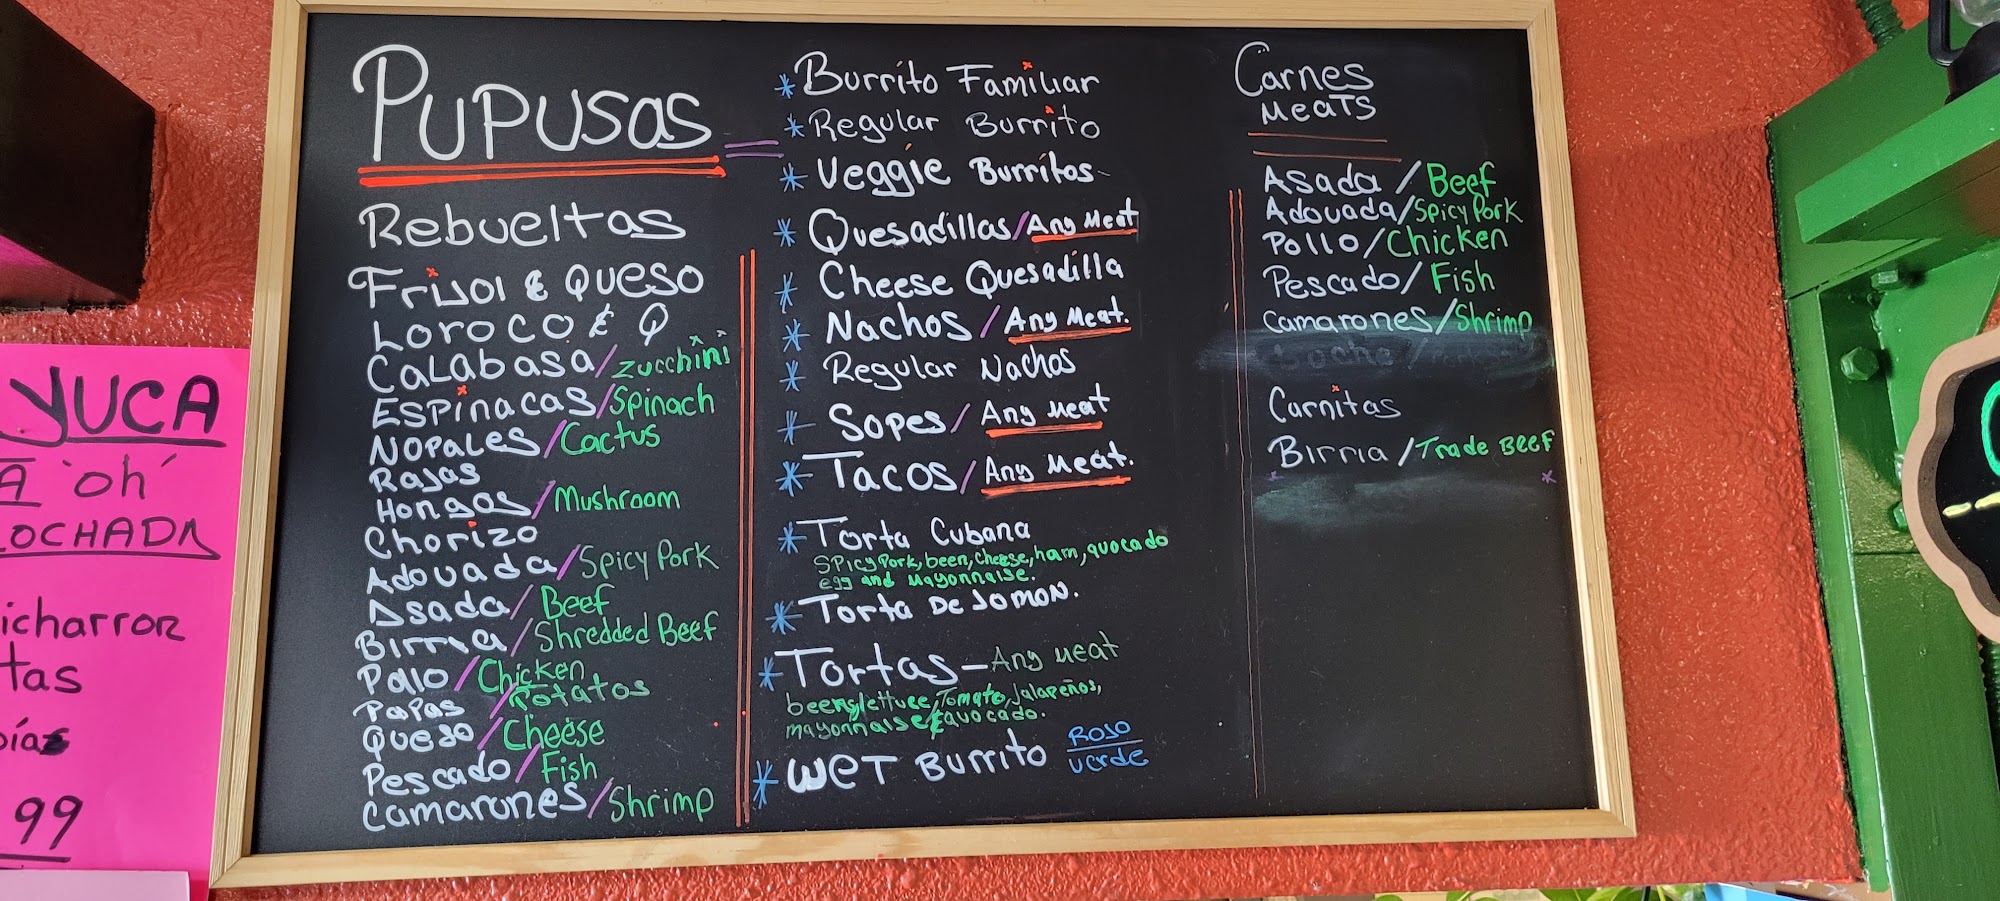 Pupusas
Rebueltas
Frijol & Queso
Loroco & Q
Calabasa/Zucchini
Espinacas/Spinach
Nopales/Cactus
Rajas
Hongos/Mushroom
Chorizo
Adovada/Spicy Pork
Asada/Beef
Birria/Shredded Beef
Pollo/Chicken
Papas/Potatos
Queso/Cheese
Pescado/Fish
Camarones/Shrimp
* Burrito Familiar
* Regular Burrito
* Veggie Burritos
* Quesadillas/Any Meat
* Cheese Quesadilla
* Nachos/Any Meat.
* Regular Nachos
* Sopes/Any Meat
* Tacos/Any Meat.
* Torta Cubana
Spicy Pork, been, Cheese, ham, avocado
egg and Mayonnaise.
* Torta De Jomon.
* Tortas - Any Meat
beens, lettuce, Tomato, Jalapeños,
mayonnaise & avocado.
* Wet Burrito Rojo
Verde
Carnes
Meats
Asada/Beef
Adovada/Spicy Pork
Pollo/Chicken
Pescado/Fish
Camarones/Shrimp
Carnitas
Birria/Trade Beef
YUCA
A "oh"
OCHADA
icharror
tas
99